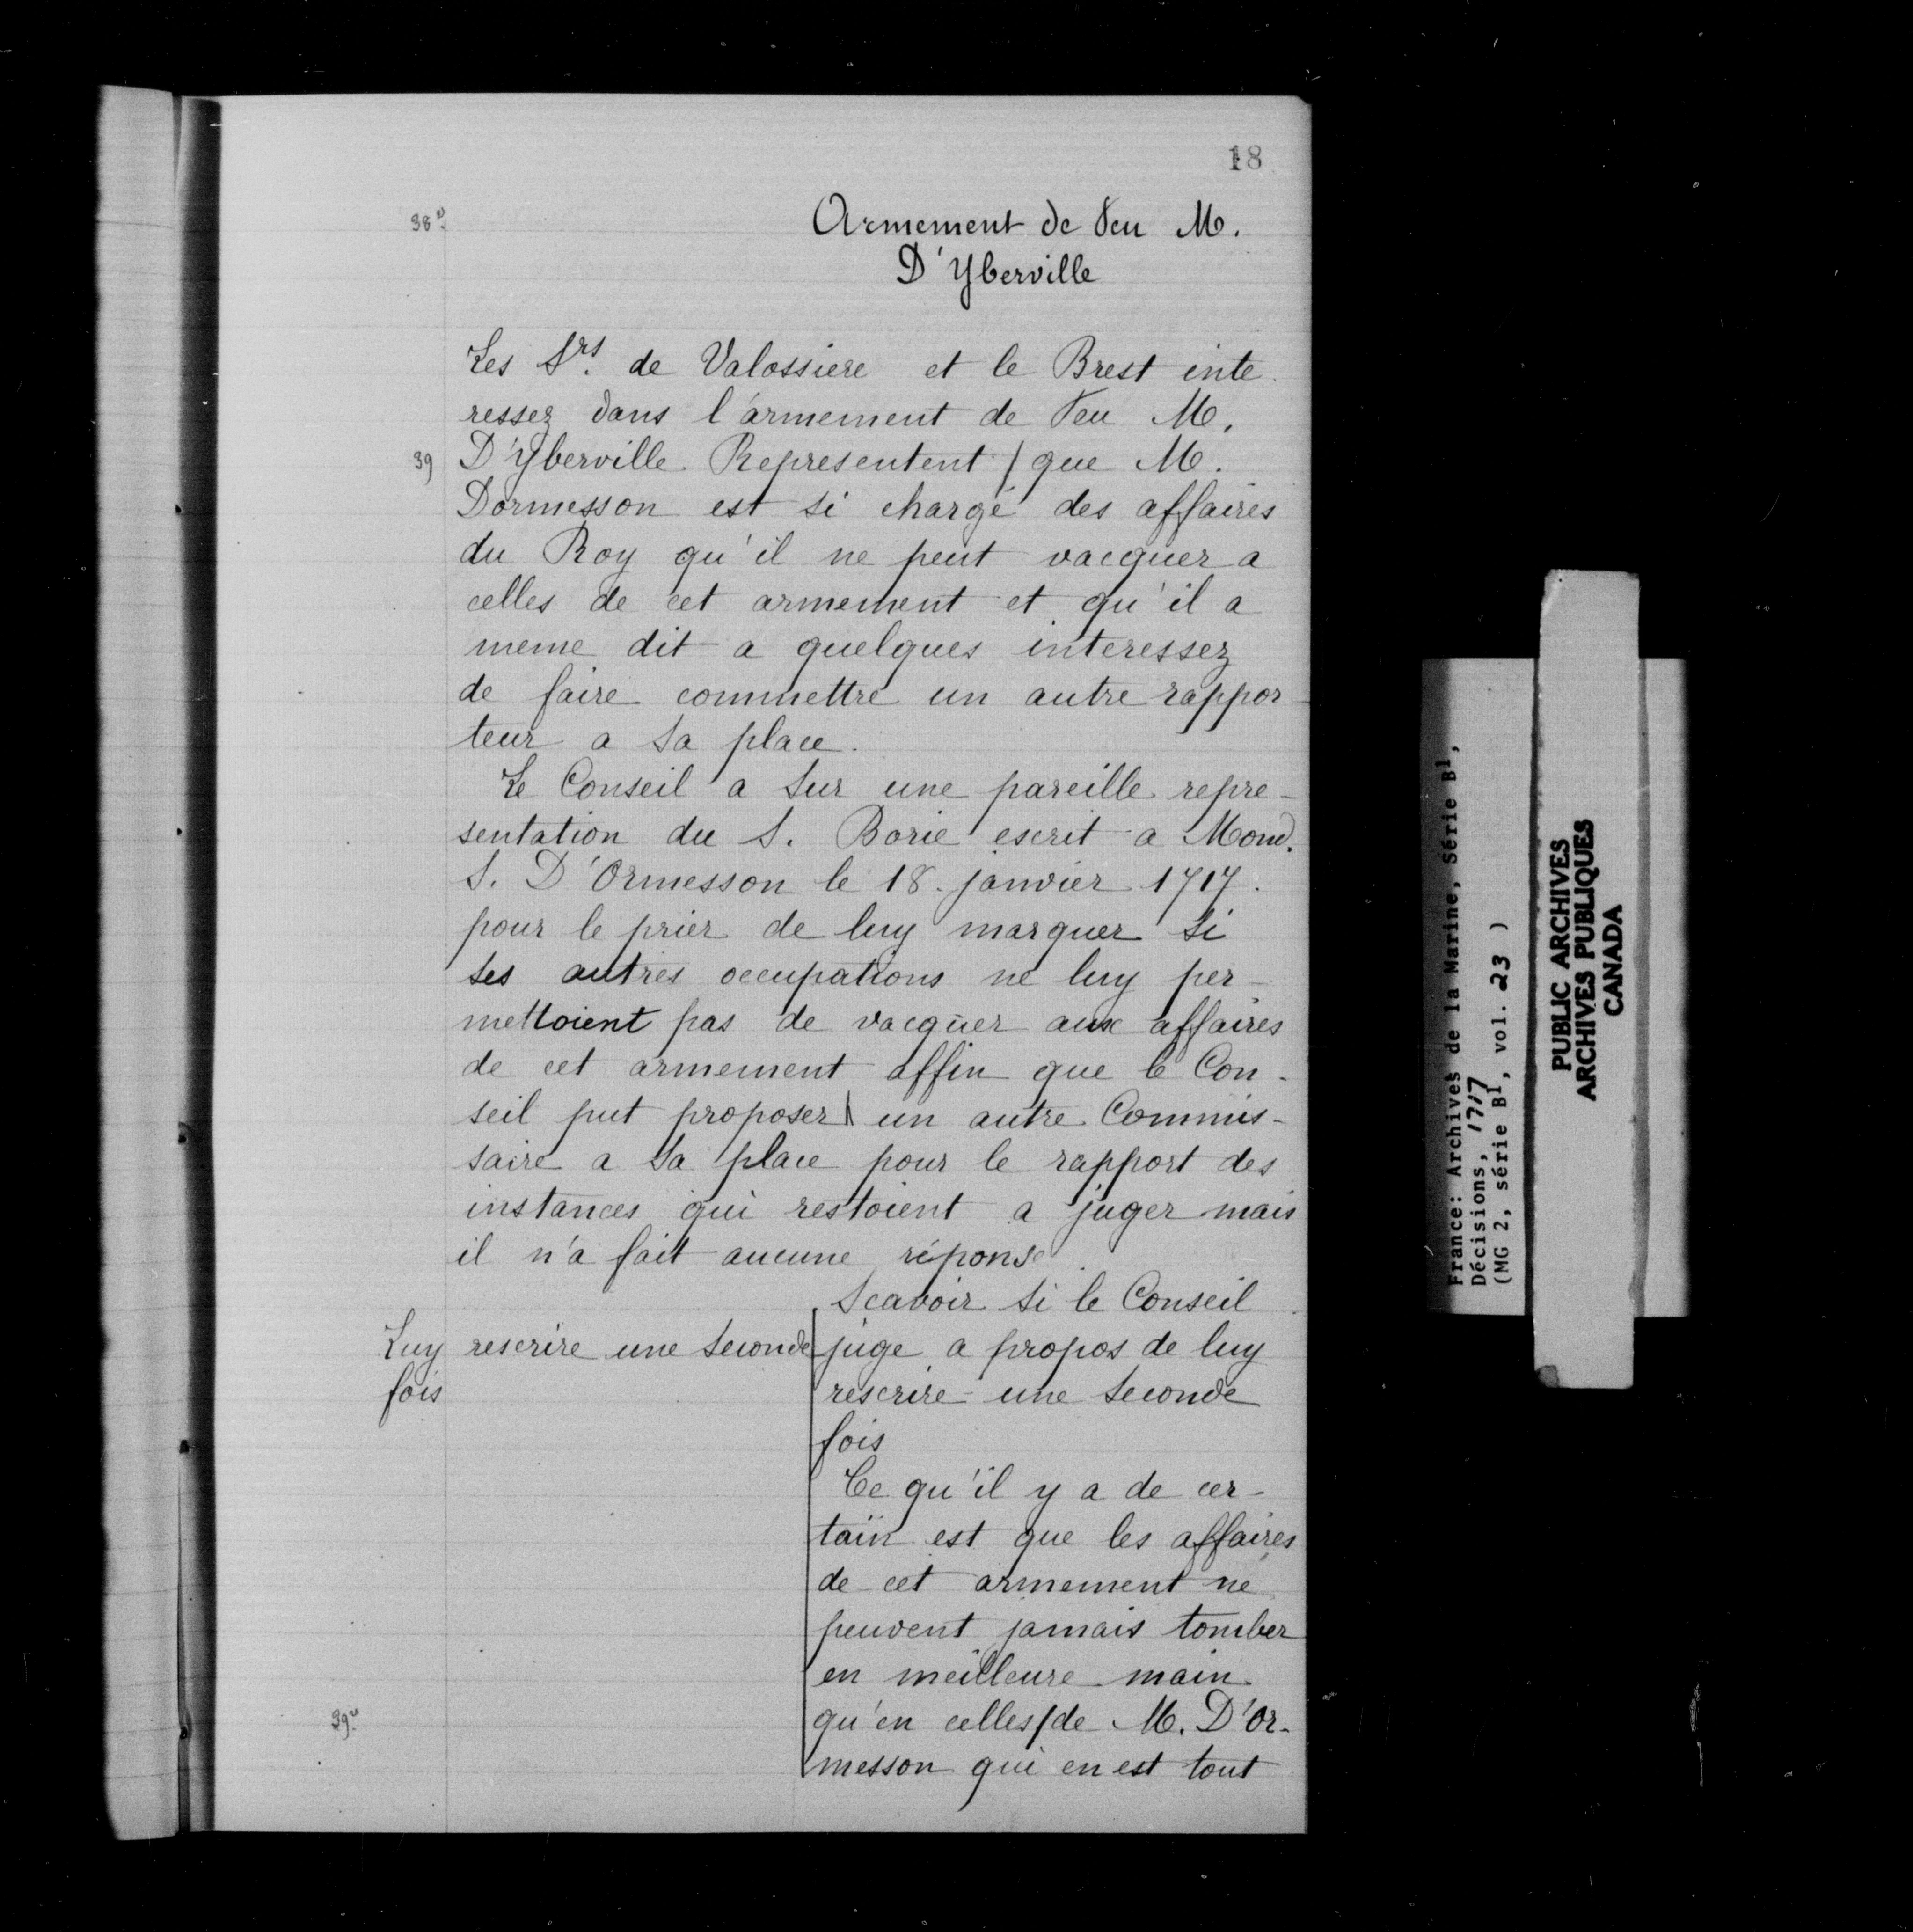 18
38v.
Armement de feu M.
D'Yberville
Les Srs. de Valossiere et le Brest inte
ressez dans l'armement de feu M.
39 D'Yberville. Representent / que M.
Dormesson est si chargé des affaires
du Roy qu'il ne peut vacquer a
celles de cet armement et qu'il a
meme dit a quelques interessez
de faire commettre un autre rappor-
teur a sa place.
Le Conseil a sur une pareille repre-
sentation du S. Borie escrit a Mond.
S. D'Ormesson le 18. janvier 1717.
pour le prier de luy marquer si
ses autres occupations ne luy per-
mettoient pas de vacquer aux affaires
de cet armement affin que le Con-
seil put proposer un autre Commis-
saire a sa place pour le rapport des
instances qui restoient a juger mais
il n'a fait aucune réponse.
Scavoir si le Conseil
juge a propos de luy
rescrire une seconde
fois
Luy rescrire une seconde
fois
Ce qu'il y a de cer-
tain est que les affaires
de cet armement ne
peuvent jamais tomber
en meilleure main
qu'en celles / de M. D'Or-
39v.
messon qui en est tout
France: Archives de la Marine, Série B1,
Décisions, 1717
(MG 2, série B1, vol. 23 )
PUBLIC ARCHIVES
ARCHIVES PUBLIQUES
CANADA